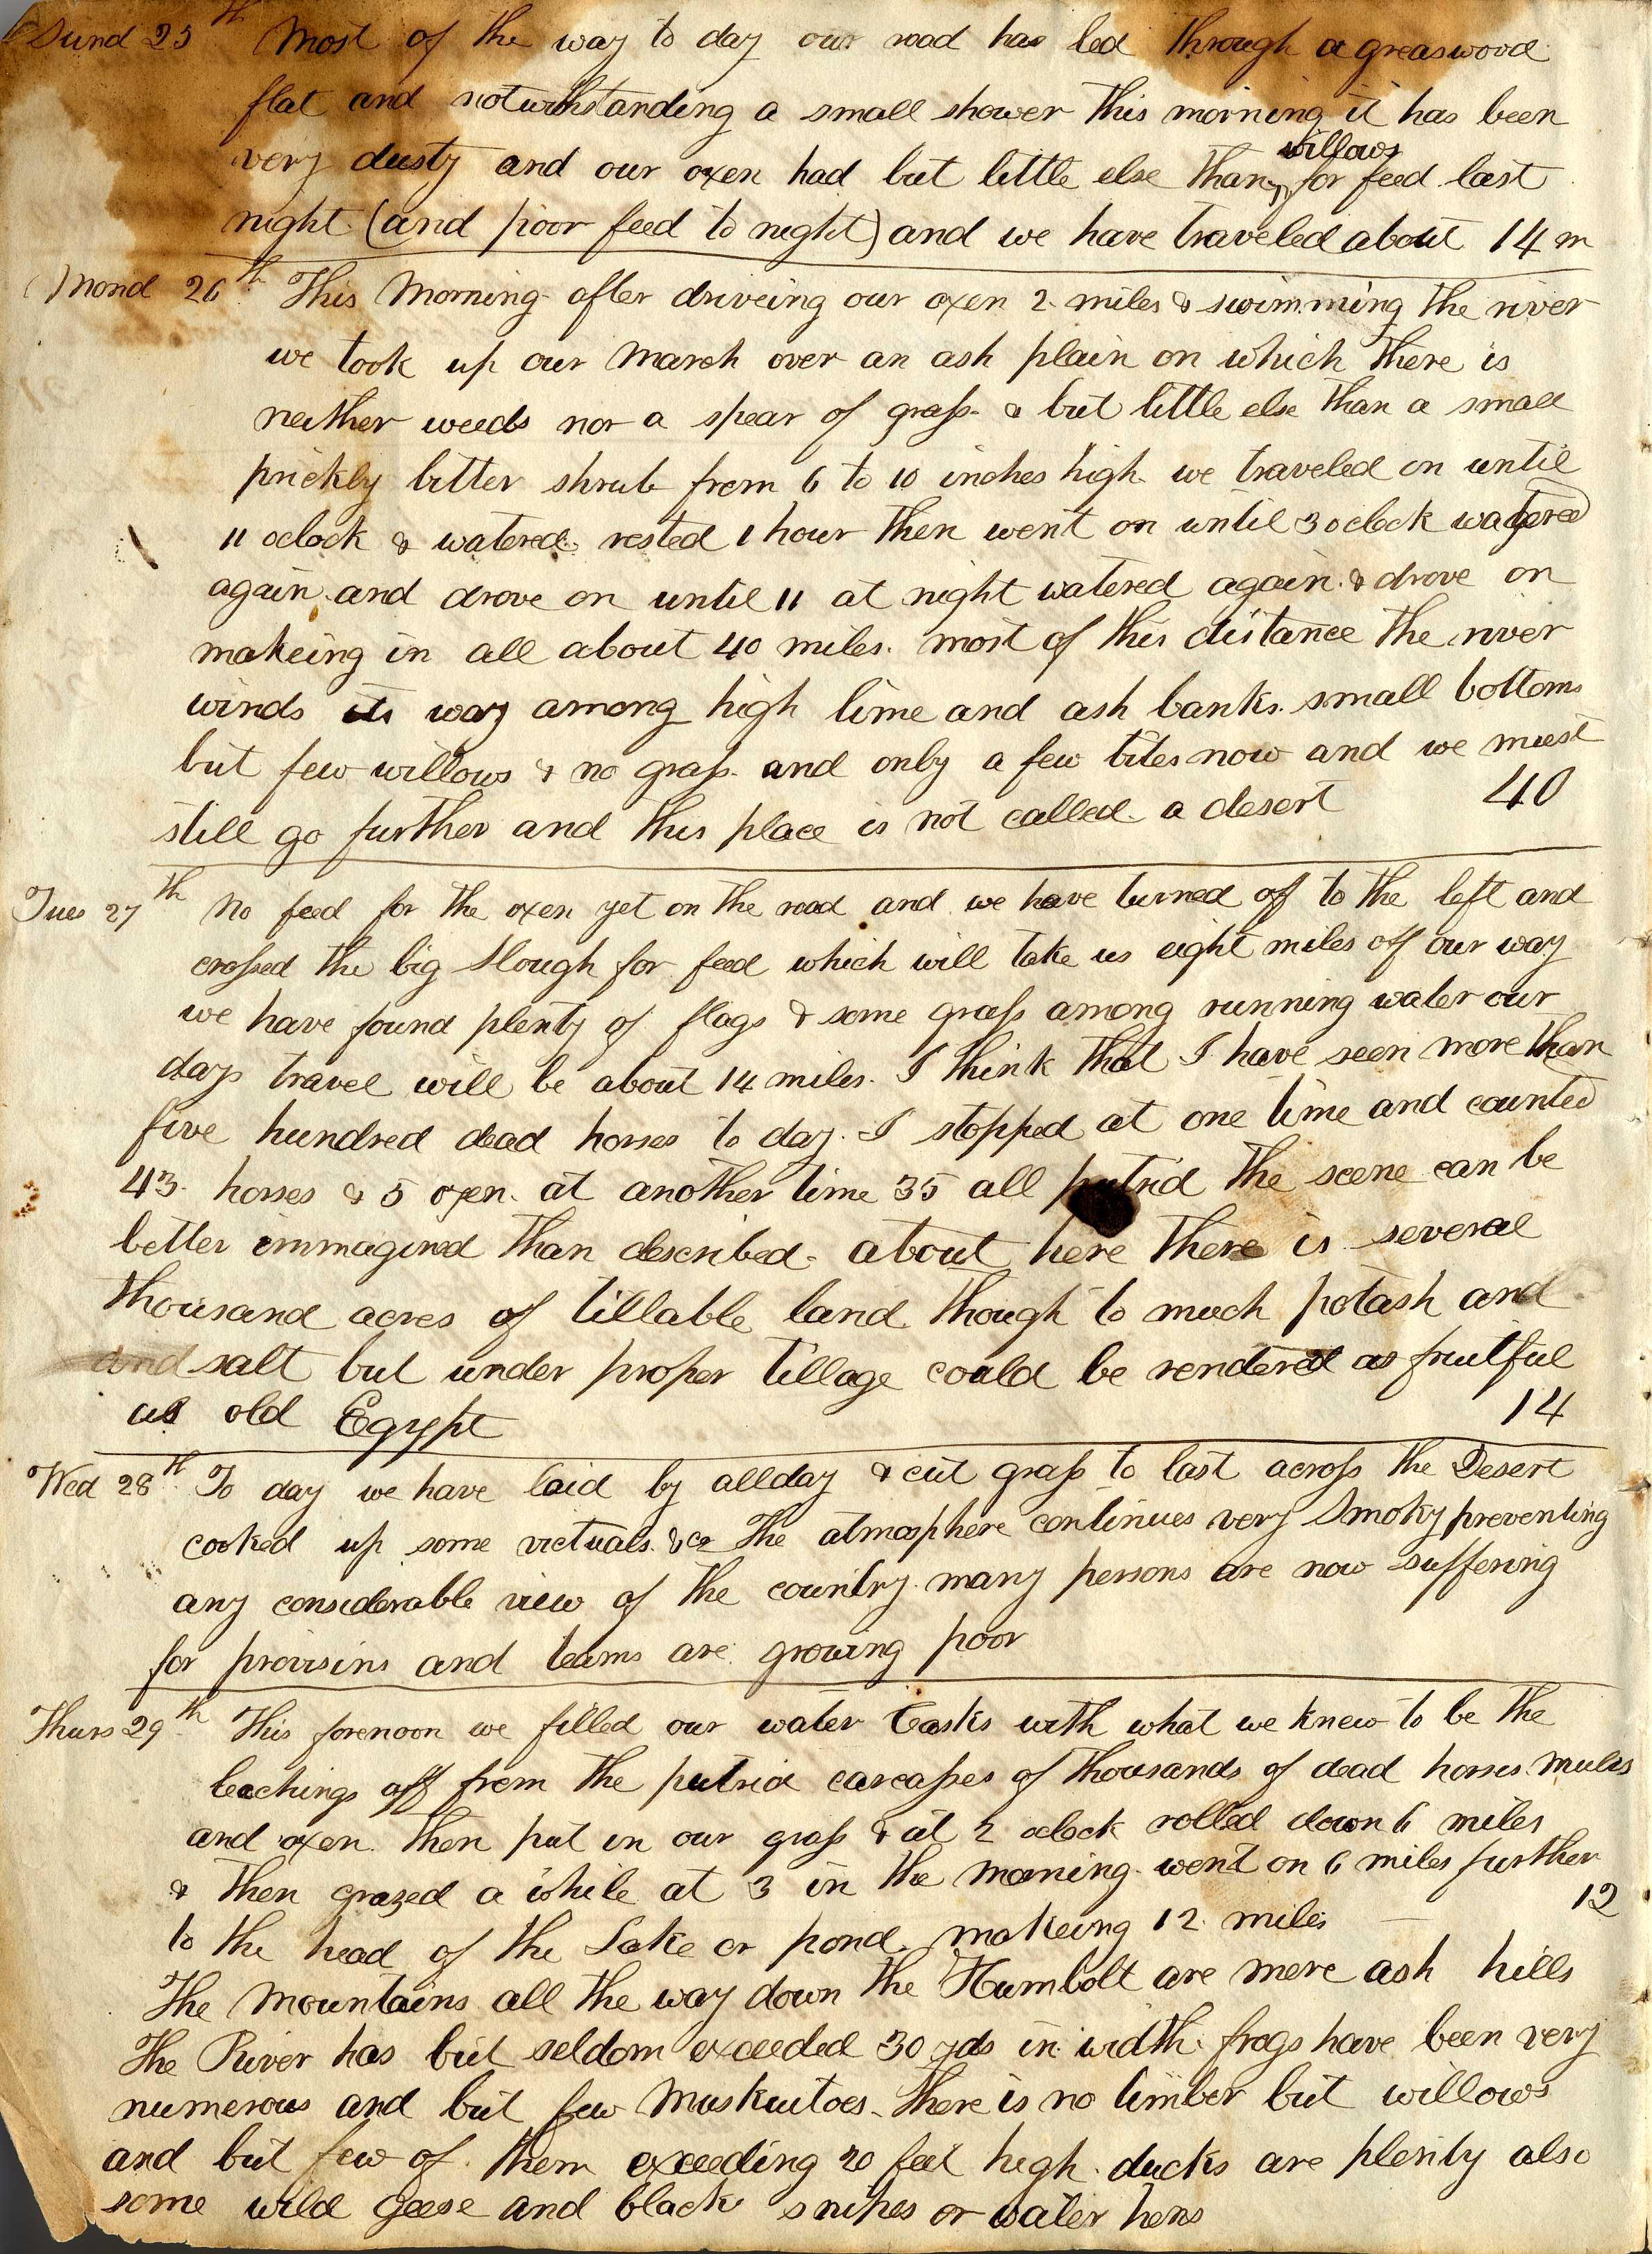 Sund 25th Most of the way to day our road has led through a greaswood
flat and notwithstanding a small shower this morning it has been
very dusty and our oxen had but little else than willows for feed last
night (and poor feed to night) and we have traveled about 14 m
Mond 26th This Morning after driveing our oxen 2 miles & swimming the river
we took up our March over an ash plain on which there is
neither weeds nor a spear of grass & but little else than a small
prickly bitter shrub from 6 to 10 inches high we traveled on until
11 oclock & watered rested 1 hour then went on until 3 oclock watered
again and drove on until 11 at night watered again & drove on
makeing in all about 40 miles. most of this distance the river
winds its way among high lime and ash banks. small bottoms
but few willows & no grass. and only a few bites now and we must
still go further and this place is not called a desert 40
Tues 27th No feed for the oxen yet on the road and we have turned off to the left and
crossed the big Slough for feed which will take us eight miles off our way
we have found plenty of flags & some grass among running water our
days travel will be about 14 miles. I think that I have seen more than
five hundred dead horses to day. I stopped at one time and counted
43 horses & 5 oxen. at another time 35 all putrid the scene can be
better immagined than described. about here there is several
thousand acres of tillable land though to much potash and
and salt but under proper tillage could be rendered as fruitful
as old Egypt 14
Wed 28th To day we have laid by allday & cut grass to last across the Desert
cooked up some victuals &c The atmosphere continues very Smoky preventing
any considerable view of the country. many persons are now suffering
for provisins and teams are growing poor
Thurs 29th This forenoon we filled our water Casks with what we knew to be the
leachings off from the putrid carcasses of thousands of dead horses. mules
and oxen. then put in our grass & at 2 oclock rolled down 6 miles
& then grazed a while at 3 in the morning went on 6 miles further
to the head of the Lake or pond. makeing 12 miles 12
The Mountains all the way down the Humbolt are mere ash hills
The River has but seldom exceeded 30 yds in width. frogs have been very
numerous and but few Muskuitoes. There is no timber but willows
and but few of them exceeding 20 feet high. ducks are plenty also
some wild geese and black snipes or water hens